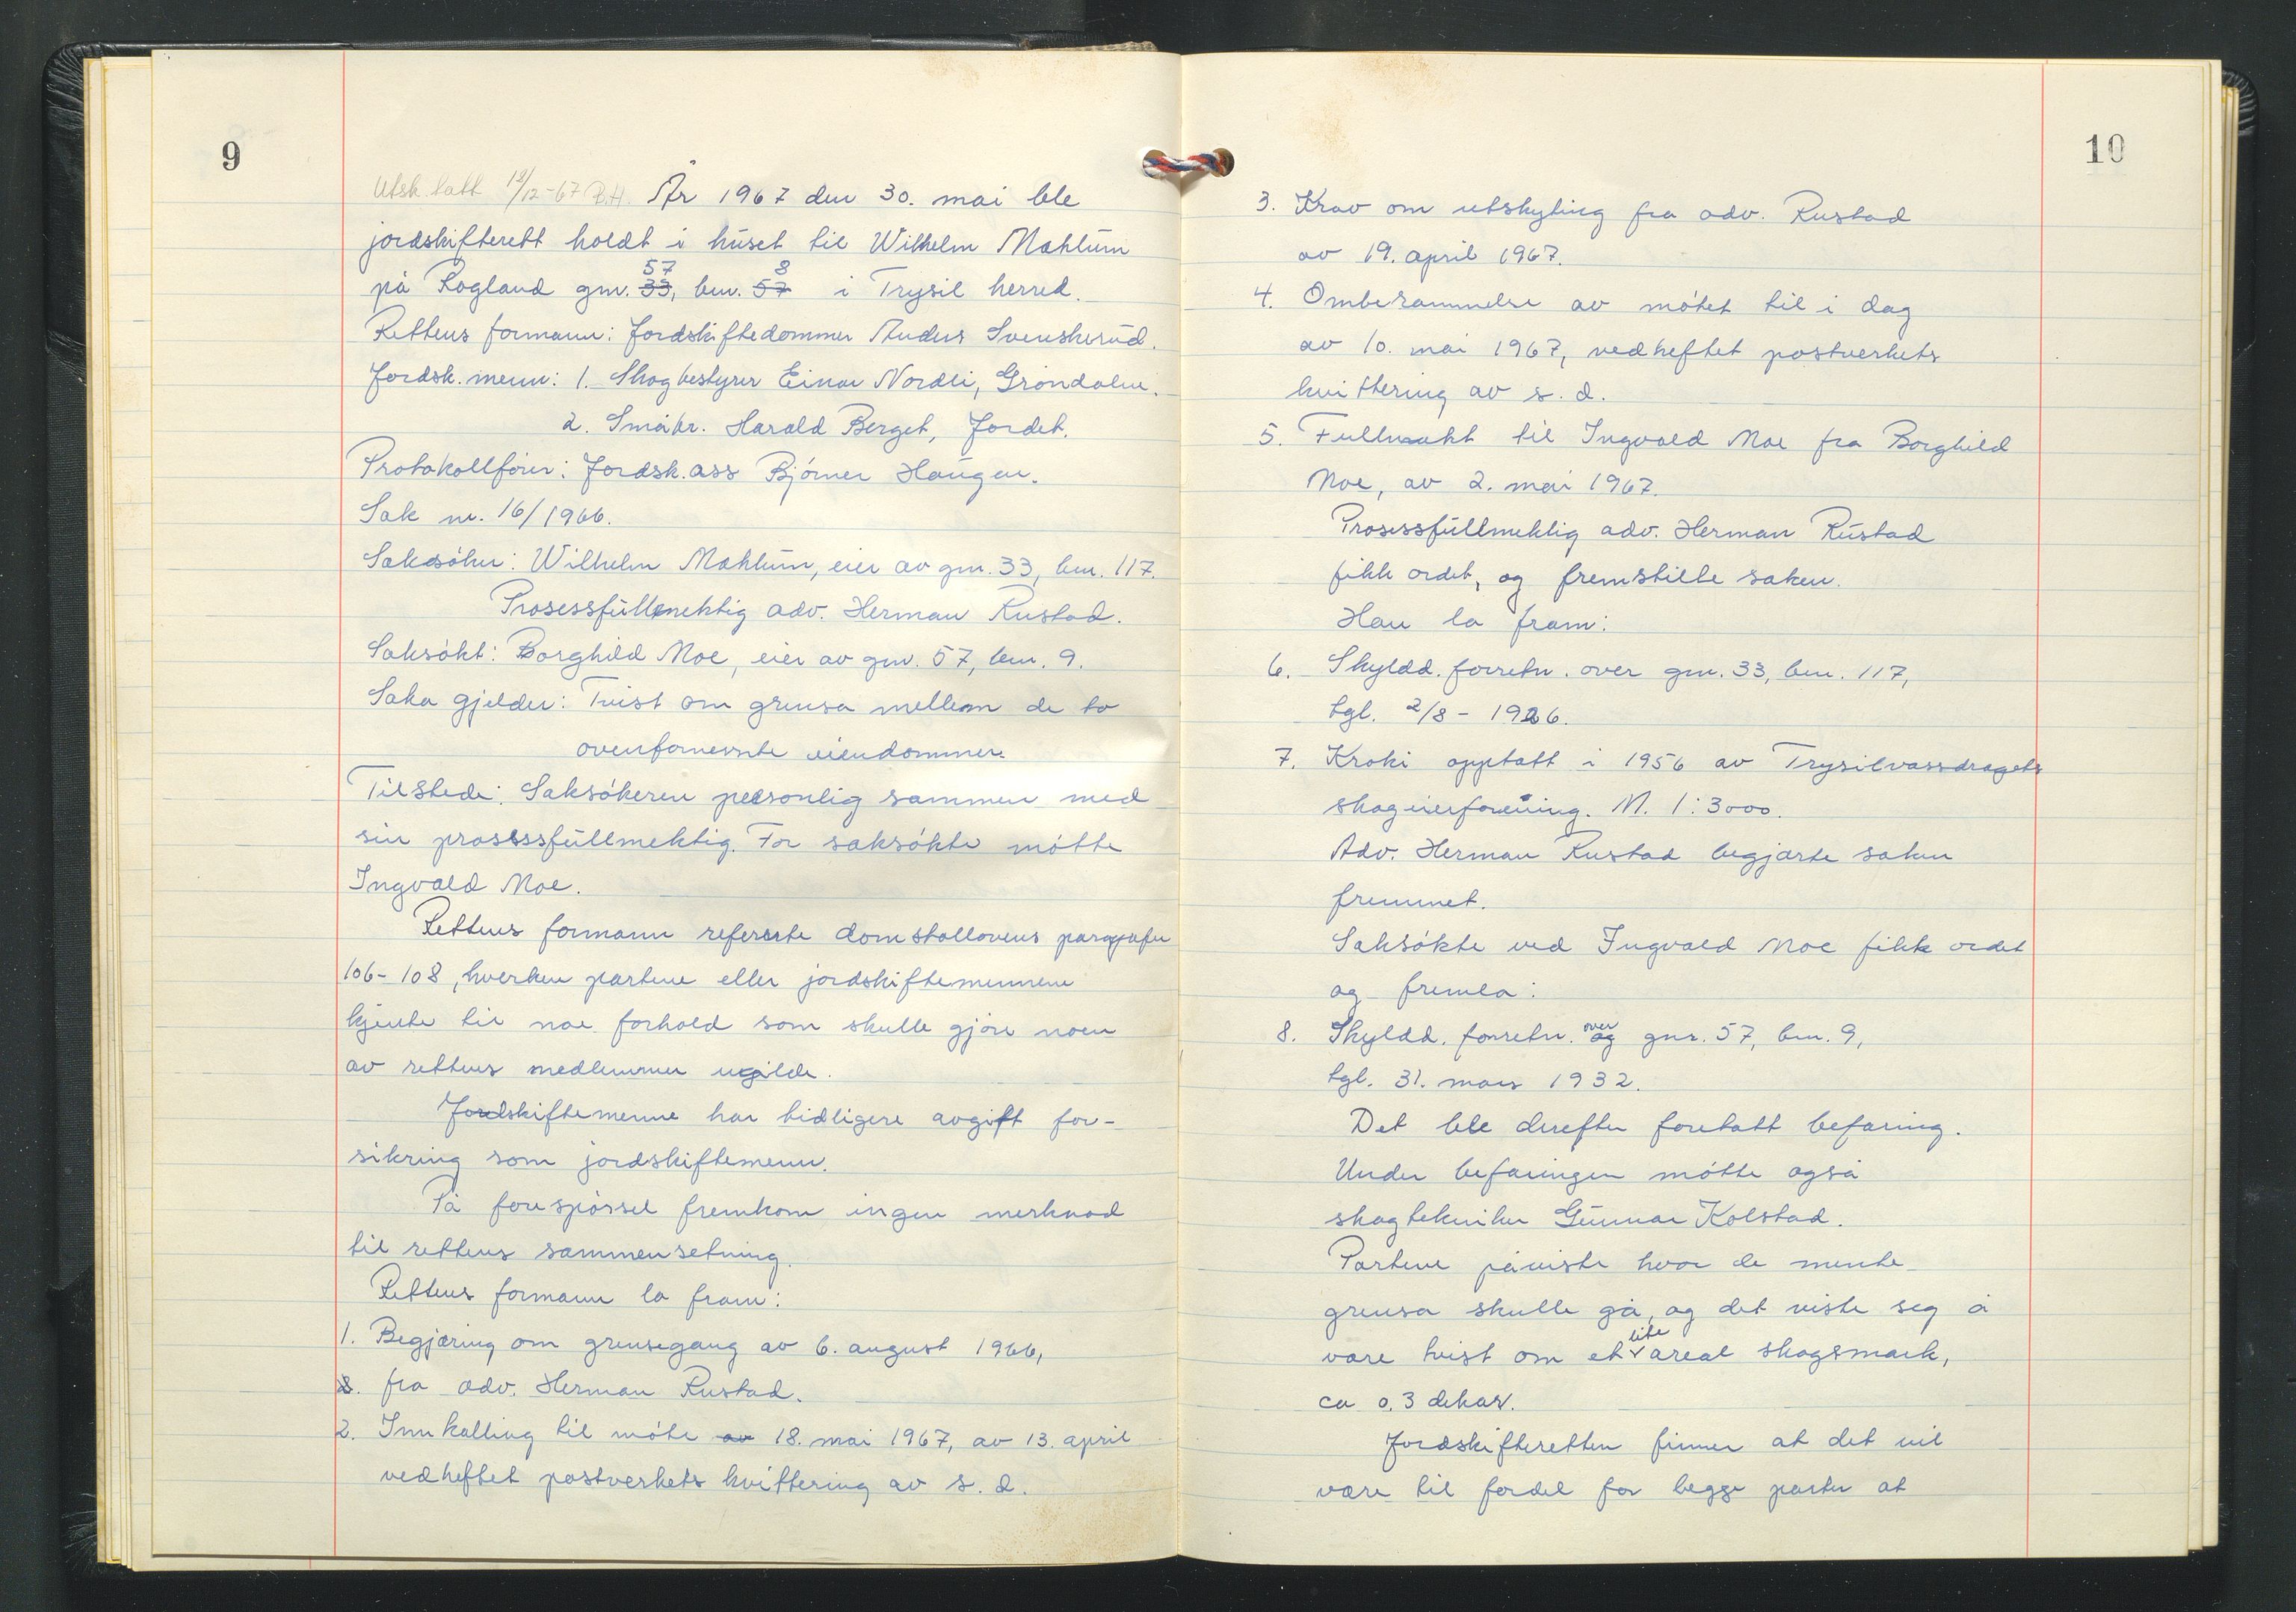 9
Utsk. tatt 12/12-67 B.H. År 1967 den 30. mai ble
jordskifterett holdt i huset til Wilhelm Mæhlum
57 8
på Rogland gnr. 33, bnr. 57 i Trysil herred.
Rettens formann: Jordskiftedommer Anders Svenskerud.
Jordsk.menn: 1. Skogbestyrer Einar Nordli, Grøndalen.
2. Småbr. Harald Berget, Jordet.
Protokollfører: Jordsk.ass Bjørner Haugen.
Sak nr. 16/1966.
Saksøker: Wilhelm Mæhlum, eier av gnr. 33, bnr. 117.
Prosessfullmektig adv. Herman Rustad.
Saksøkt: Borghild Moe, eier av gnr. 57, bnr. 9.
Saka gjelder: Tvist om grensa mellom de to
ovenfornevnte eiendommer.
Tilstede: Saksøkeren personlig sammen med
sin prosessfullmektig. For saksøkte møtte
Ingvald Moe.
Rettens formann refererte domstollovens paragrafer
106-108, hverken partene eller jordskiftemennene
kjente til noe forhold som skulle gjøre noen
av rettens medlemmer ugilde.
Jordskiftemenne har tidligere avgitt for-
sikring som jordskiftemenn.
På forespørsel fremkom ingen merknad
til rettens sammensetning.
Rettens formann la fram:
1. Begjæring om grensegang av 6. august 1966,
fra adv. Herman Rustad.
2. Innkalling til møte av 18. mai 1967, av 13. april
vedheftet postverkets kvittering av s. d.
10
3. Krav om utskyting fra adv. Rustad
av 19. april 1967.
4. Omberammelse av møtet til i dag
av 10. mai 1967, vedheftet postverkets
kvittering av s. d.
5. Fullmakt til Ingvald Moe fra Borghild
Moe, av 2. mai 1967.
Prosessfullmektig adv. Herman Rustad
fikk ordet, og fremstille saken.
Han la fram:
6. Skyldd. forretn. over gnr. 33, bnr. 117,
tgl. 2/8 - 1926.
7. Kroki opptatt i 1956 av Trysilvassdragets
skogeierforening. M. 1:3000.
Adv. Herman Rustad begjærte saken
fremmet.
Saksøkte ved Ingvald Moe fikk ordet
og fremla:
over
8. Skyldd. forretn. og gnr. 57, bnr. 9,
tgl. 31. mars 1932.
Det ble derefter foretatt befaring.
Under befaringen møtte også
skogtekniker Gunnar Kolstad.
Partene påviste hvor de mente
grensa skulle gå, og det viste seg å
lite
være tvist om et areal skogsmark,
ca 0,3 dekar.
Jordskifteretten finner at det vil
være til fordel for begge parter at